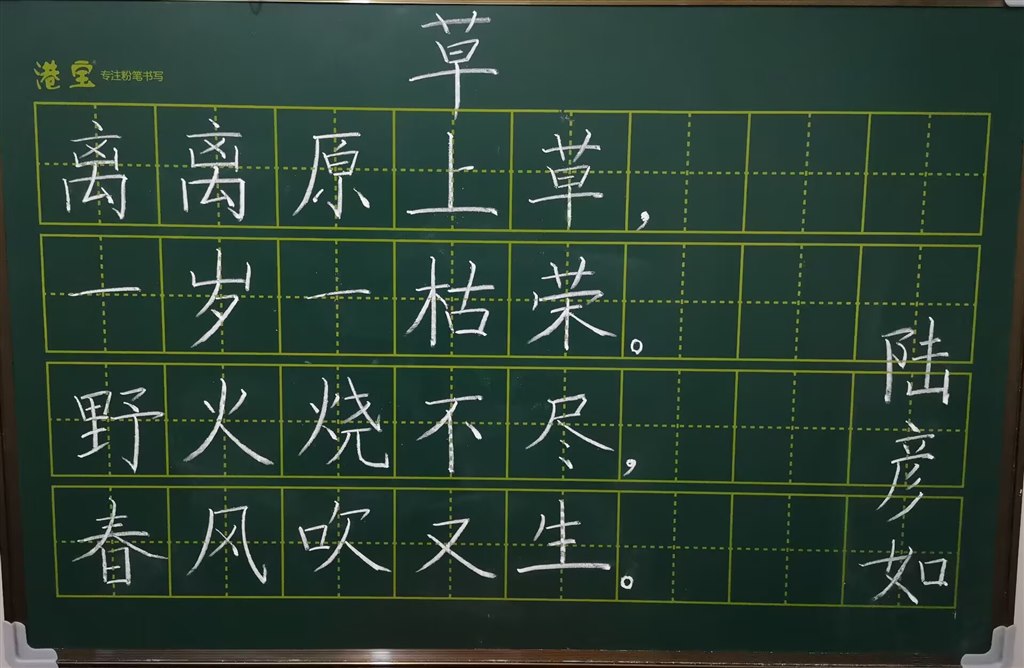 草
港宝 专注粉笔书写
离离原上草，
一岁一枯荣。
野火烧不尽，
春风吹又生。
陆彦如